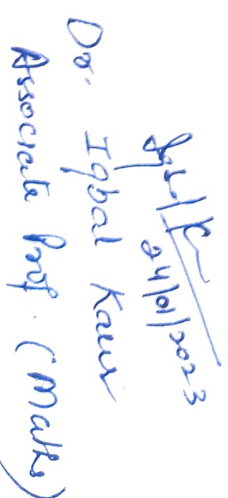 Iqbal K
24/01/2023
Dr. Iqbal Kaur
Associate Prof. (Maths)